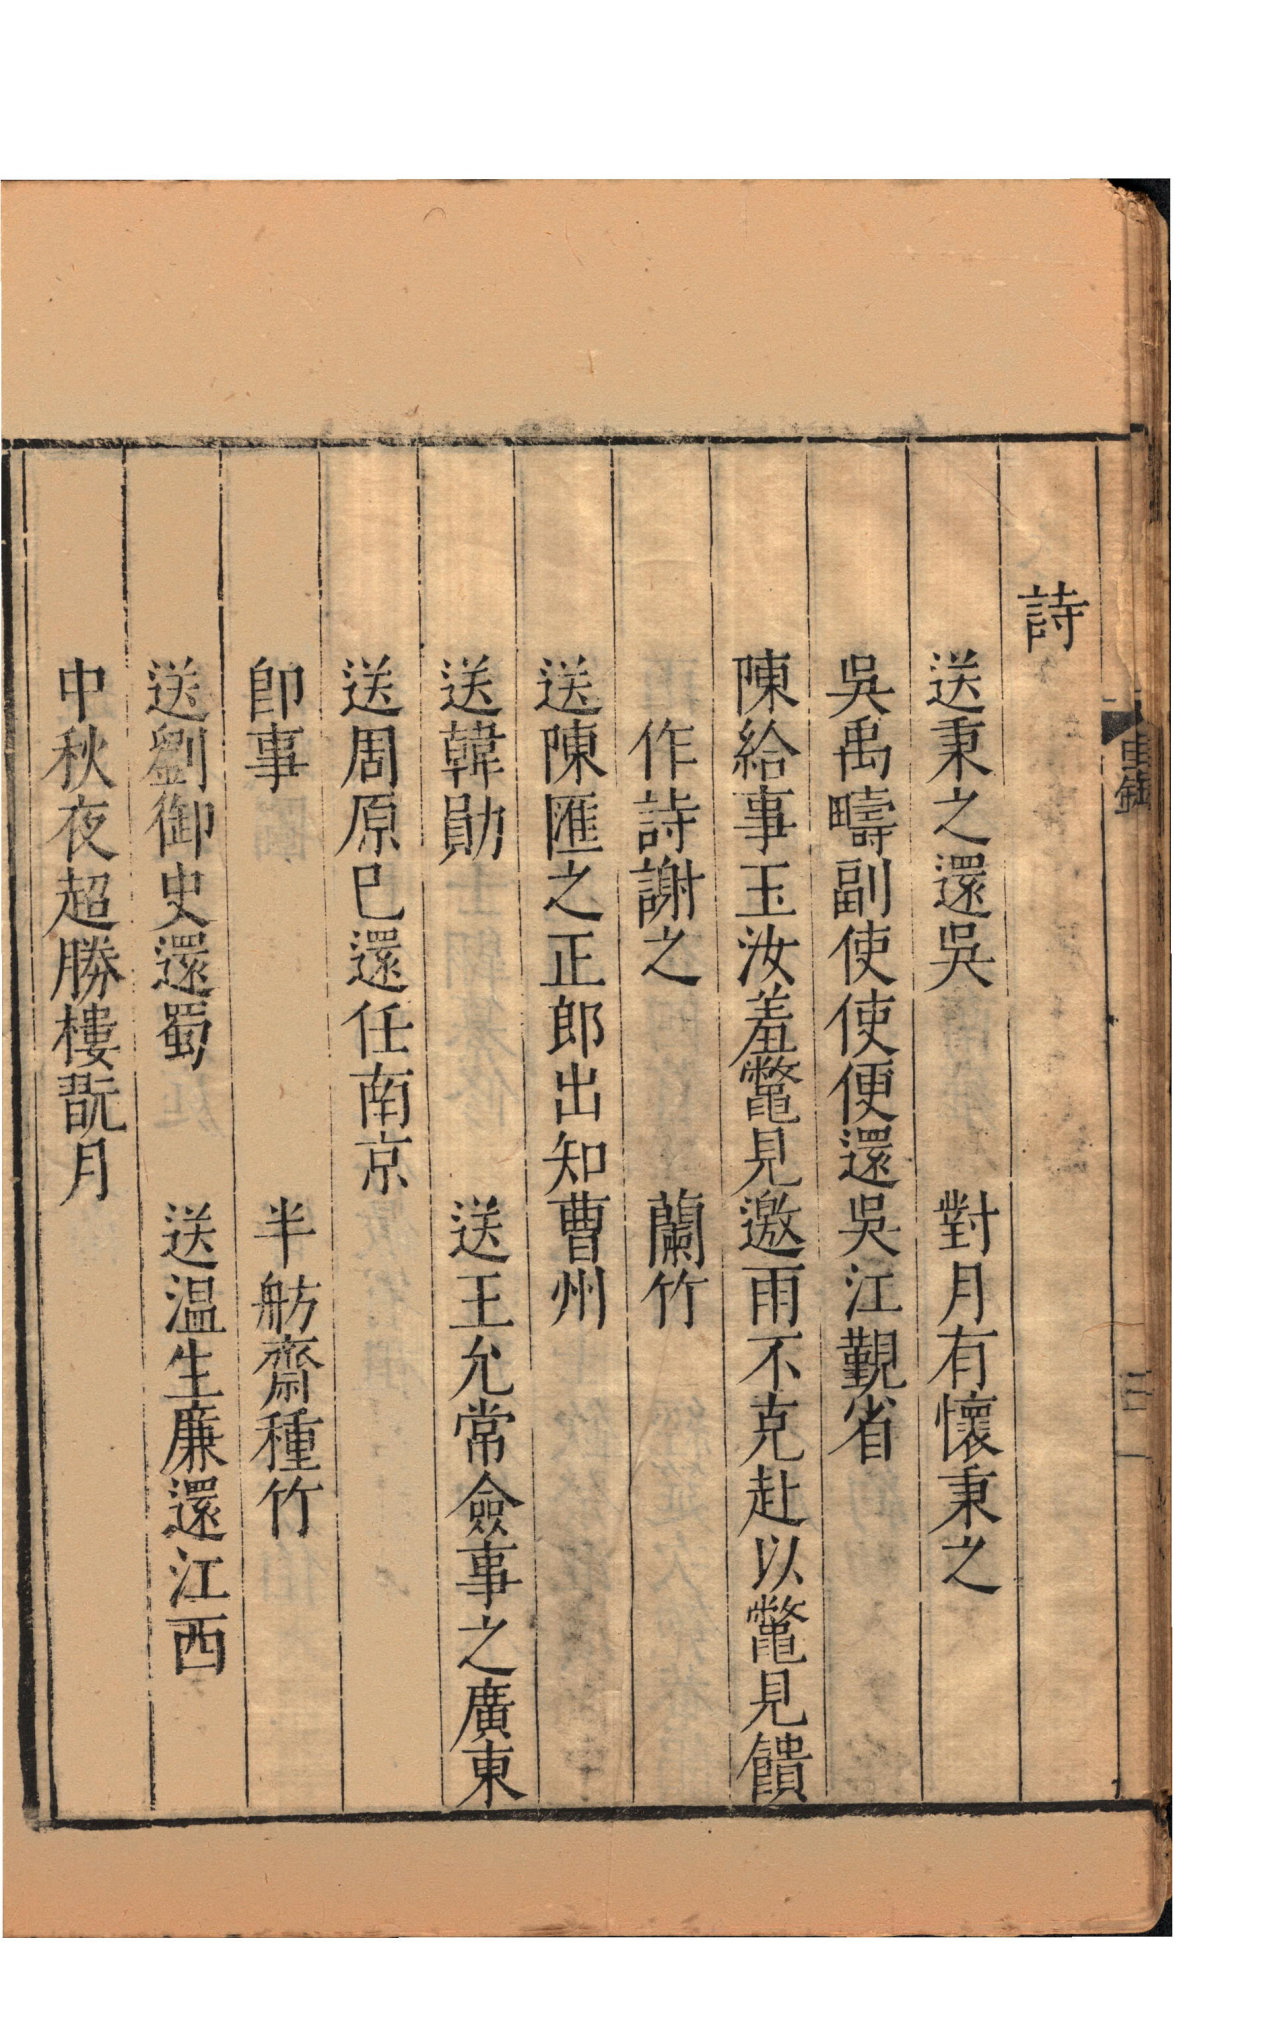 詩
送秉之還吳　對月有懷秉之
吳禹疇副使使便還吳江覲省
陳給事玉汝羞鼈見邀雨不克赴以鼈見饋
作詩謝之　蘭竹
送陳匯之正郎出知曹州
送韓勛　送王允常僉事之廣東
送周原已還任南京
即事　半舫齋種竹
送劉御史還蜀　送温生廉還江西
中秋夜超勝樓翫月